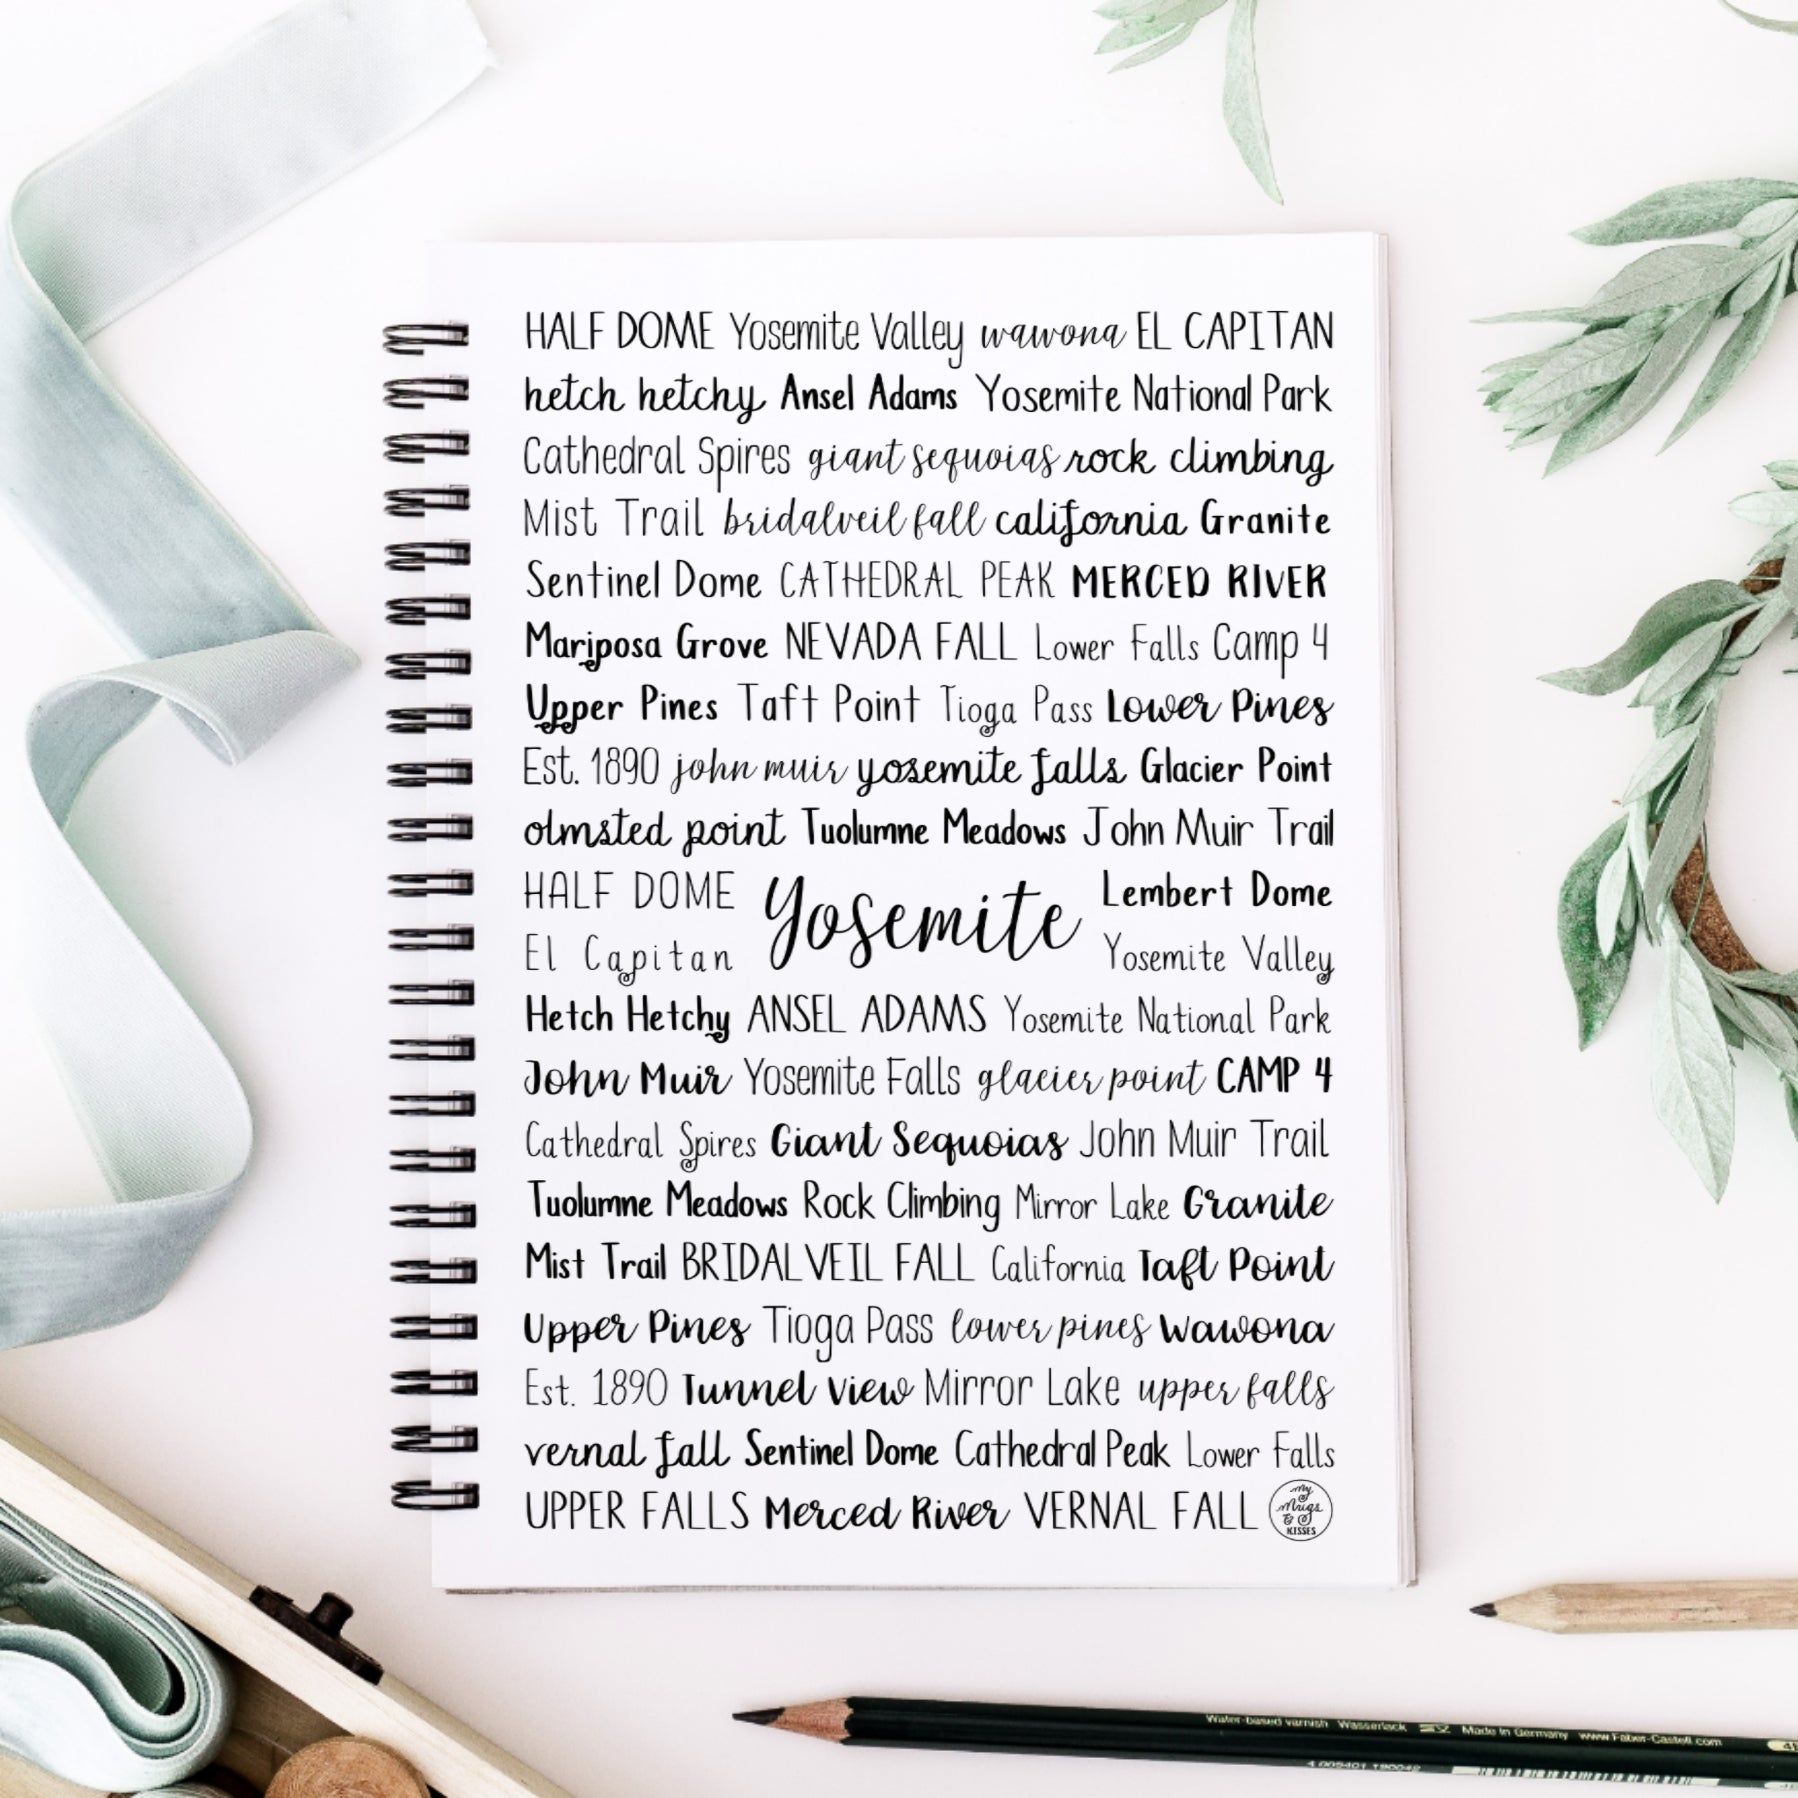 HALF DOME Yosemite Valley wawona EL CAPITAN
hetch hetchy Ansel Adams Yosemite National Park
Cathedral Spires giant sequoias rock climbing
Mist Trail bridalveil fall california Granite
Sentinel Dome CATHEDRAL PEAK MERCED RIVER
Mariposa Grove NEVADA FALL Lower Falls Camp 4
Upper Pines Taft Point Tioga Pass Lower Pines
Est. 1890 john muir yosemite falls Glacier Point
olmsted point Tuolumne Meadows John Muir Trail
HALF DOME Yosemite Lembert Dome
El Capitan Yosemite Valley
Hetch Hetchy ANSEL ADAMS Yosemite National Park
John Muir Yosemite Falls glacier point CAMP 4
Cathedral Spires Giant Sequoias John Muir Trail
Tuolumne Meadows Rock Climbing Mirror Lake Granite
Mist Trail BRIDALVEIL FALL California Taft Point
Upper Pines Tioga Pass lower pines Wawona
Est. 1890 Tunnel View Mirror Lake upper falls
vernal fall Sentinel Dome Cathedral Peak Lower Falls
UPPER FALLS Merced River VERNAL FALL
My
Mugs
&
KISSES
Water-based varnish Wasserlack Made in Germany www.Faber-Castell.com